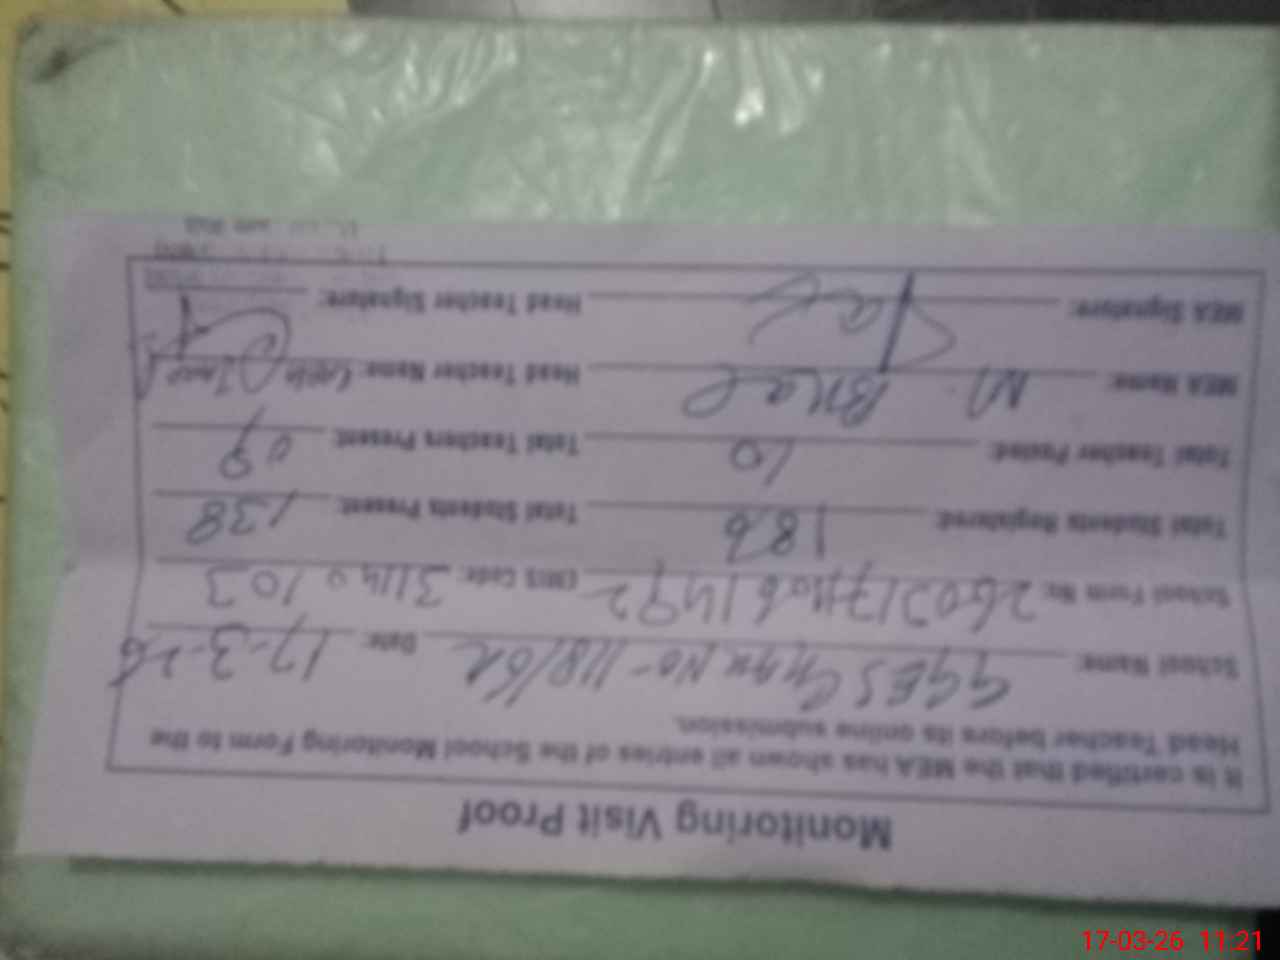 Monitoring Visit Proof
It is certified that the MEA has shown all entries of the School Monitoring Form to the
Head Teacher before its online submission.
School Name: GGES Chak No- 118/6R Date: 17-3-26
School Form No: EMIS Code: 31140103
Total Students Registered: 186 Total Students Present: 138
Total Teacher Posted: 10 Total Teachers Present: 09
MEA Name: M. Bilal Head Teacher Name:
MEA Signature: Head Teacher Signature:
17-03-26 11:21